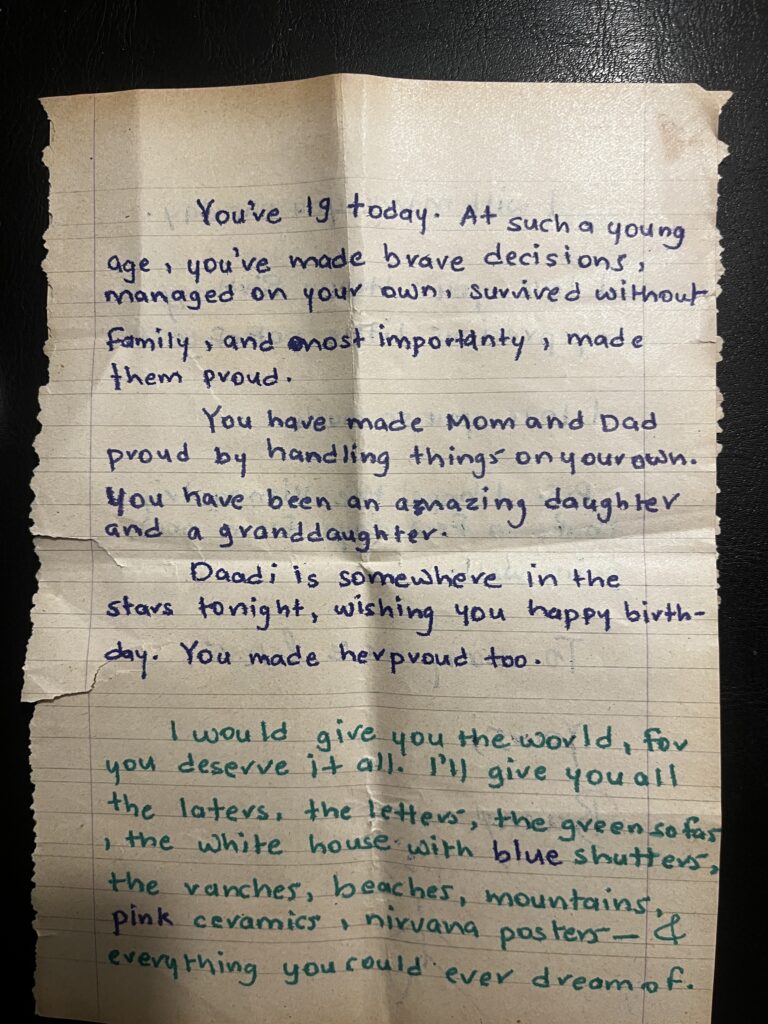 You've 19 today. At such a young
age, you've made brave decisions,
managed on your own, survived without
family, and most importanty, made
them proud.
You have made Mom and Dad
proud by handling things on your own.
You have been an amazing daughter
and a granddaughter.
Daadi is somewhere in the
stars tonight, wishing you happy birth-
day. You made her proud too.
I would give you the world, for
you deserve it all. I'll give you all
the laters, the letters, the green sofas
, the white house with blue shutters,
the ranches, beaches, mountains,
pink ceramics, nirvana posters— &
everything you could ever dream of.